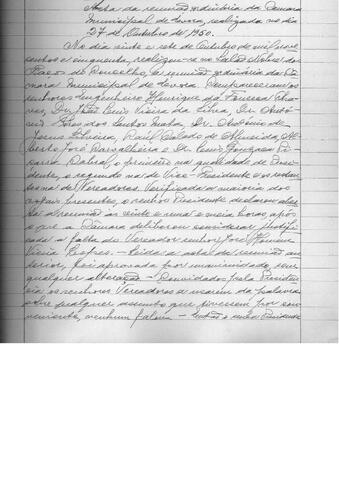 Acta da reunião ordinária da Camara
Municipal de Evora, realizada no dia
27 de Outubro de 1950.
No dia vinte e sete de Outubro de mil nove
centos e cinquenta, realizou-se no Salão Nobre dos
Paços do Concelho, a reunião ordinária da Câ
mara Municipal de Evora. Compareceram os
senhores Engenheiro Henrique da Fonseca Cha
ves, Dr. João Luis Vieira da Silva, Dr. Antó
nio dos Santos, Dr. António de
Jesus Silveira, Raúl Calado de Almeida, Al
berto José Carvalheira e Dr. Luis Fonseca
Cabral, o primeiro na qualidade de Presi
dente, o segundo na de Vice-Presidente e os restan
tes na de Vereadores. Verificada a maioria dos
presentes, o senhor Presidente declarou aber
ta a reunião às vinte e uma e meia horas, após
o que a Câmara deliberou considerar justifi
cada a falta do Vereador senhor José
. - Lida a acta da reunião an
terior, foi aprovada por unanimidade, sem
qualquer alteração. - Convidados pela Presidên
cia os senhores Vereadores a usarem da palavra
sobre qualquer assunto que tivessem por con
veniente, nenhum falou. - Então o senhor Presidente